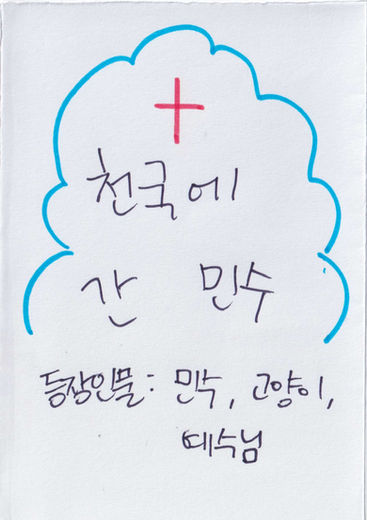 천국에
간 민수
등장인물: 민수, 고양이,
예수님